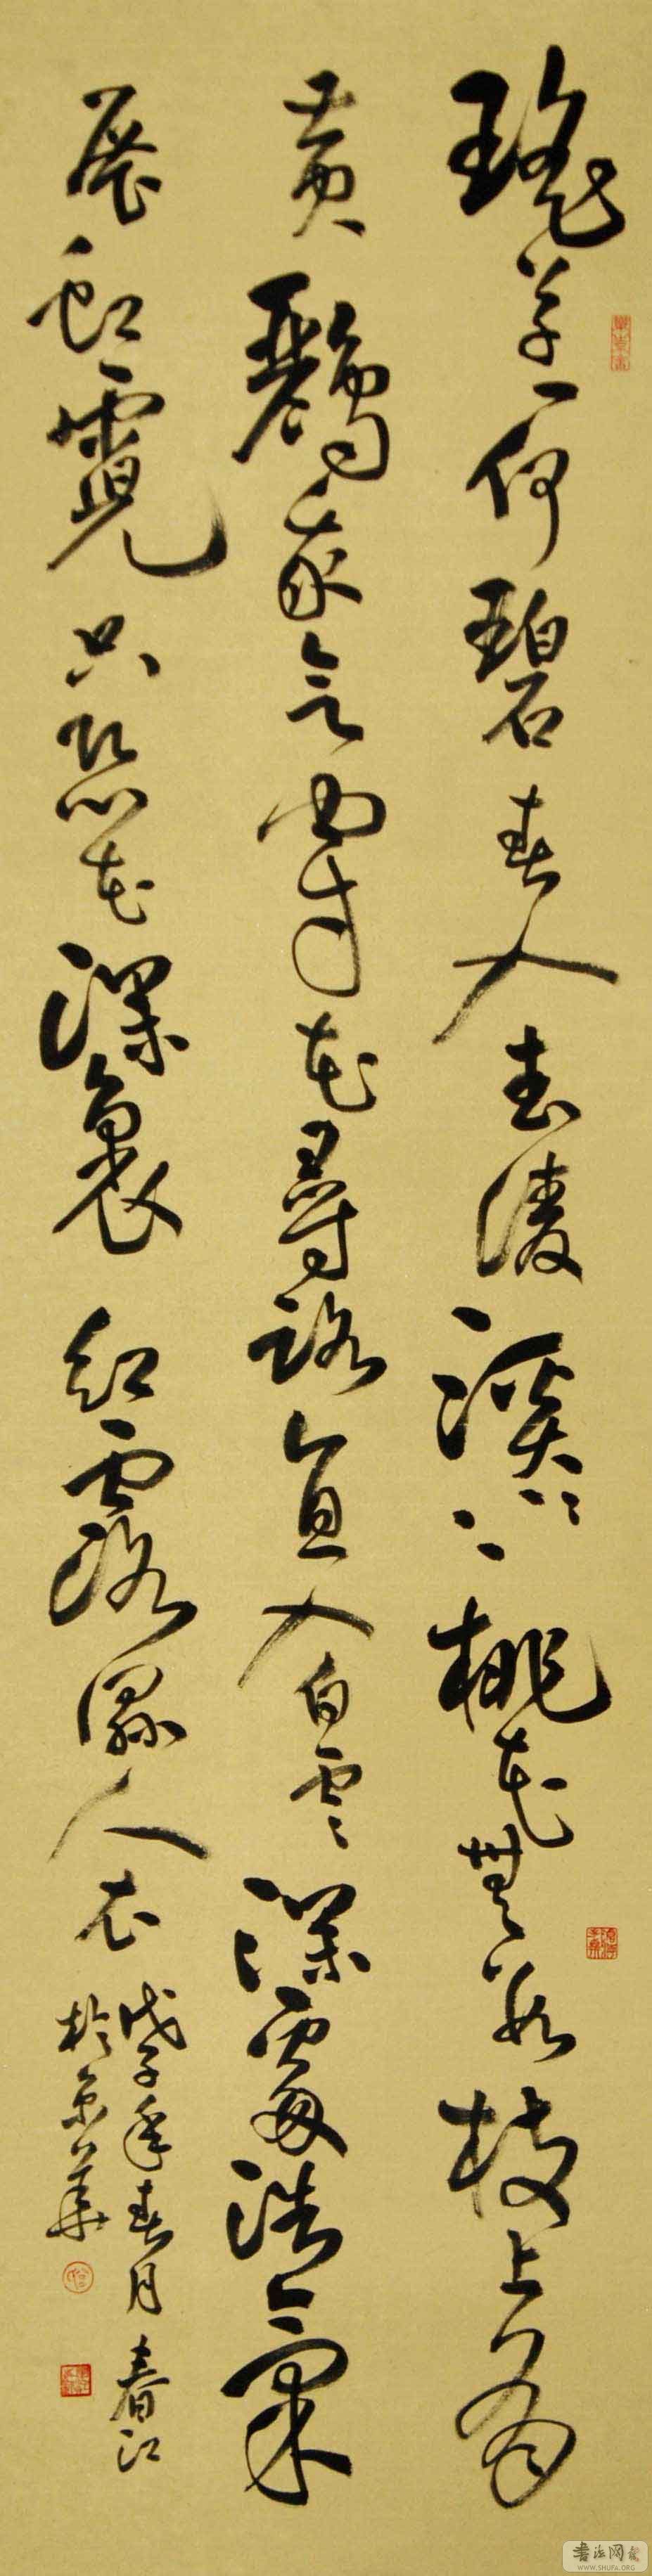 瑤草一何碧春入武陵溪〻上桃花無數枝上有
黃鸝我欲穿花尋路直入白雲深處浩氣
展虹霓只恐花深裏紅露濕人衣
戊子年春月春江
於京華
书法网
WWW.SHUFA.ORG